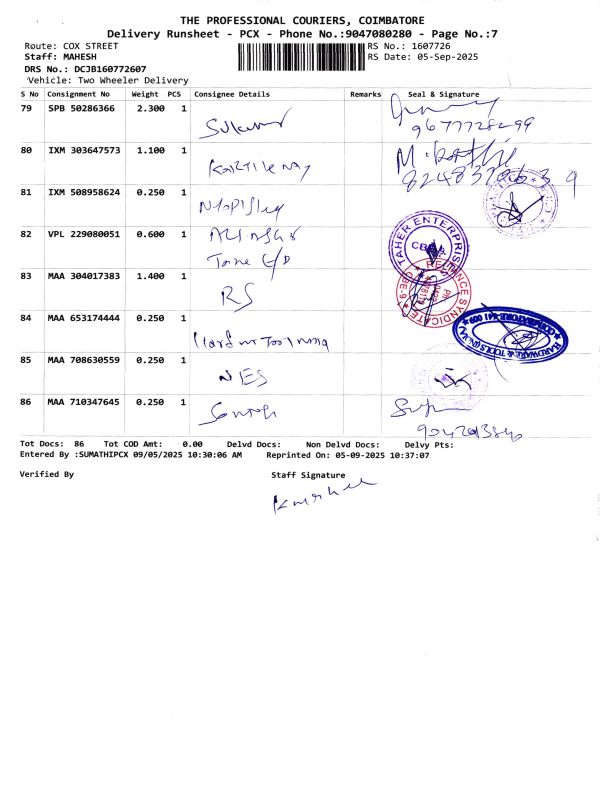 THE PROFESSIONAL COURIERS, COIMBATORE
Delivery Runsheet - PCX - Phone No.:9047080280 - Page No.:7
Route: COX STREET
RS No.: 1607726
Staff: MAHESH
RS Date: 05-Sep-2025
DRS No.: DCJB160772607
Vehicle: Two Wheeler Delivery
S No Consignment No Weight PCS Consignee Details Remarks Seal & Signature
79 SPB 50286366 2.300 1
80 IXM 303647573 1.100 1
81 IXM 508958624 0.250 1
82 VPL 229080051 0.600 1
TAHER ENTERPRISES
83 MAA 304017383 1.400 1 RS
RELIANCE SYNDICATE
84 MAA 653174444 0.250 1
HARDWARE & TOOLS
85 MAA 708630559 0.250 1 NES
86 MAA 710347645 0.250 1
Tot Docs: 86 Tot COD Amt: 0.00 Delvd Docs: Non Delvd Docs: Delvy Pts:
Entered By :SUMATHIPCX 09/05/2025 10:30:06 AM Reprinted On: 05-09-2025 10:37:07
Verified By Staff Signature